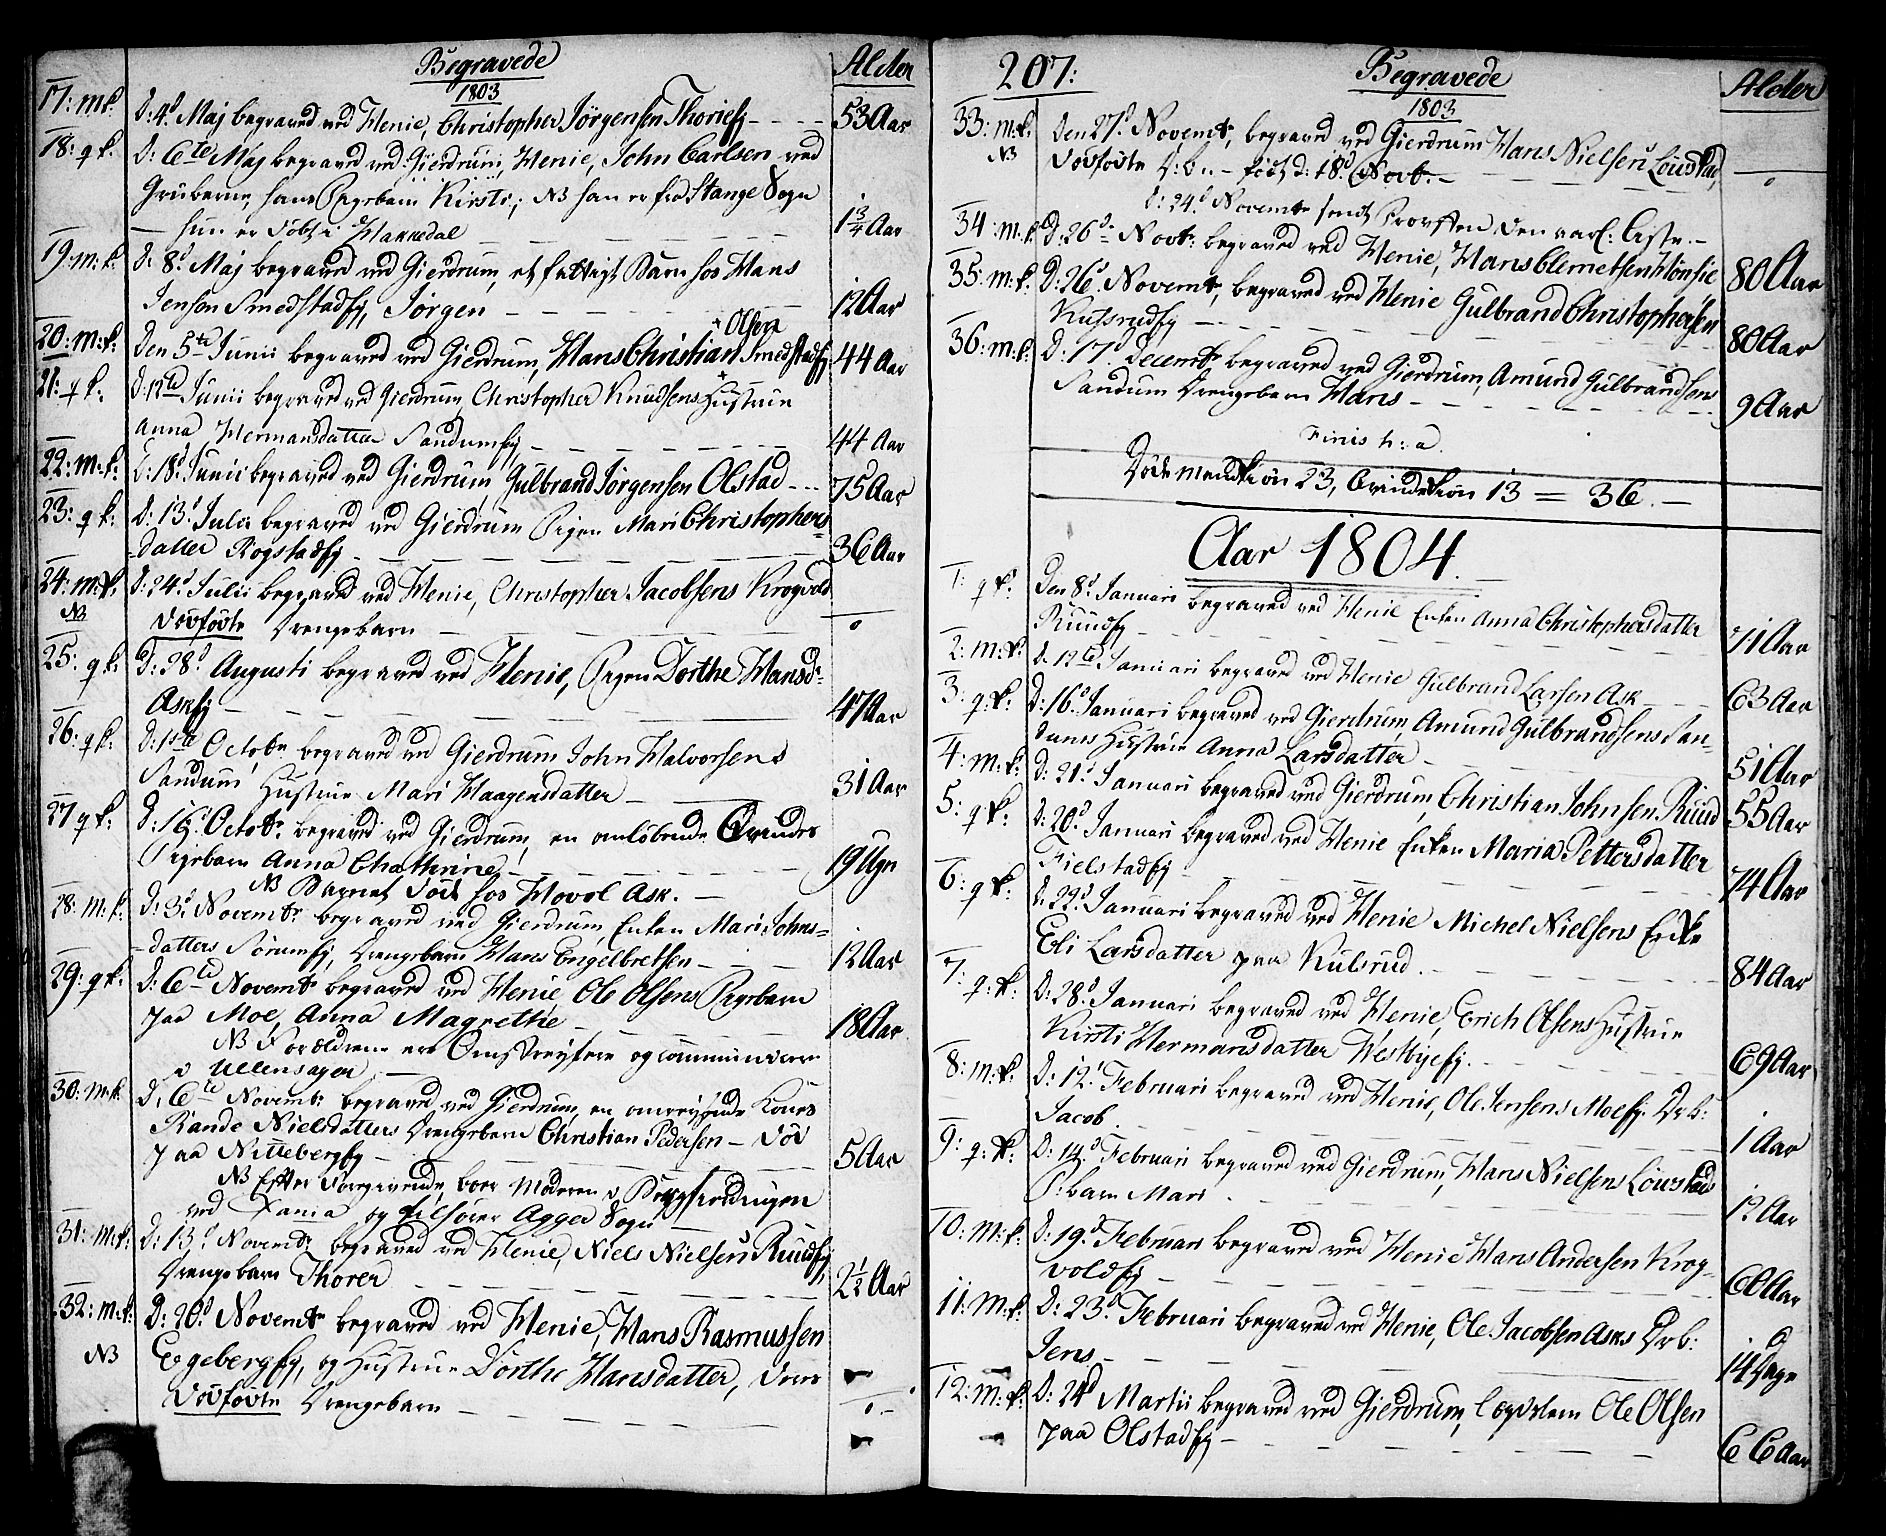 Begravede
1803
Alder
17: m k. D: 4d Maj begraved ved Henie, Christopher Jörgensen Thoriej 53 Aar
18: q k. D: 6te Maj begraved ved Gierdrum, Henie, John Carlsen ved
Pigebarn Kirsti; NB han er fra Stange Sogn
hun er döbt i Hakkedal 1 3/4 Aar
19: m: k. D: 8d Maj begraved ved Gierdrum, et fattigt Barn hos Hans
Jensen Smedstadej, Jörgen 12 Aar
20: m: k. Den 5te Junii begraved ved Gierdrum, Hans Christian + Olsen Smedstadej 44 Aar
21: q k. D: 12te Junii begraved ved Gierdrum, Christopher Knudsens Hustrue
Anna Hermansdatter Sandumej 44 Aar
22: m: k. D: 18d Junii begraved ved Gierdrum, Gulbrand Jörgensen Olstad 75 Aar
23: q k: D: 13d Julii begraved ved Gierdrum Pigen Mari Christophers-
datter Rogstadej 36 Aar
24: m: k. D: 24d Julii begraved ved Henie, Christopher Jacobsens Krogvold
NB dödfödte Drengebarn 0
25: q k: D: 28d Augusti begraved ved Henie, Pigen Dorthe Hansd:
Askej 47 Aar
26: q k: D: 1ste Octobr begraved ved Gierdrum John Halvorsens
Sandum Hustrue Mari Haagensdatter 31 Aar
27 q k: D: 16d Octobr. begraved ved Gierdrum, en omlöbende Qvindes
Pigebarn Anna Chathrine 19 Ugr
NB Barnet död hos Hovol Ask.
28: m. k. D: 3d Novembr begraved ved Gierdrum, Enken Mari Johns-
datters Sörumej, Drengebarn Hans Engelbretsen 12 Aar
29: q k: D: 6te Novembr begraved ved Henie, Ole Olsens Pigebarn
paa Moe, Anna Magrethe 18 Aar
NB Forældrene ere Omstreifere og communicere
i Ullensager
30: m k. D: 6te Novemb: begraved ved Gierdrum, en omreisende Kones
Rande Nielsdatters Drengebarn Christian Pedersen - död
paa Nittebergej 5 Aar
NB Efter Foregivende boer Moderen i
ved Xania og tilhörer Agger Sogn
31: m: k: D: 13d Novembr begraved ved Henie, Niels Nielsens Ruudej
Drengebarn Thorer 2 1/2 Aar
32: m: k: D: 20d Novembr begraved ved Henie, Hans Rasmussen
NB Egebergej, og Hustrue Dorthe Hansdatter, deres
dödfödte Drengebarn 0
207:
Begravede
1803
Alder
33: m: k: Den 27d Novembr, begraved ved Gierdrum Hans Nielsens Löustad,
NB dödfödte D: b: - födt d: 18d Novb. 0
D: 24d Novembr sendt Provsten den qvarl: Liste.
34: m. k. D: 26d Novbr: begraved ved Henie, Hans Clemetsen Hönsie 80 Aar
35: m: k: D: 26d Novembr, begraved ved Henie Gulbrand Christophersen
Kulsrudej 80 Aar
36: m: k. D: 17d Decembr begraved ved Gierdrum, Amund Gulbrandsens
Sandum Drengebarn Hans 9 Aar
Finis h: a.
Döde Mandkiön 23, Qvindekiön 13 = 36.
Aar 1804.
1: q k: Den 8d Januari begraved ved Henie Enken Anna Christophersdatter
Ruudej 71 Aar
2: m: k. D: 12te Januari begraved ved Henie Gulbrand Larsen Ask 63 Aar
3: q: k: D: 16d Januari begraved ved Gierdrum, Amund Gulbrandsens San-
dums Hustrue Anna Larsdatter 51 Aar
4: m: k: D: 21d Januari begraved ved Gierdrum, Christian Johnsen Ruud 55 Aar
5: q k: D: 20d Januari begraved ved Henie Enken Maria Pettersdatter
Fielstadej 74 Aar
6: q k: D: 22d Januari begraved ved Henie Michel Nielsens Enke
Eli Larsdatter paa Kulsrud. 84 Aar
7: q: k: D: 28d Januari begraved ved Henie, Erich Olsens Hustrue
Kirsti Hermansdatter Westbyeej. 69 Aar
8: m: k: D: 12d Februari begraved ved Henie, Ole Jensens Moeej Drb:
Jacob. 1 Aar
9: q: k: D: 14d Februari begraved ved Gierdrum, Hans Nielsens Löustads
P: barn Mari 12 Aar
10: m: k: D: 19d Februari begraved ved Henie Hans Andersen Krog-
voldej 60 Aar
11: m: k: D: 23d Februari begraved ved Henie, Ole Jacobsen Asks Drb:
Jens. 14 Dage
12: m: k: D: 2d Martii begraved ved Gierdrum, Lægdslem Ole Olsen
paa Olstadej 66 Aar